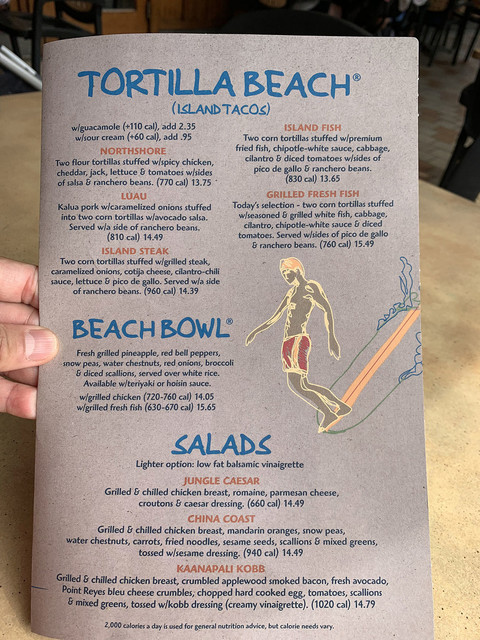 TORTILLA BEACH®
(ISLAND TACOS)
w/guacamole (+110 cal), add 2.35
w/sour cream (+60 cal), add .95
NORTHSHORE
Two flour tortillas stuffed w/spicy chicken,
cheddar, jack, lettuce & tomatoes w/sides
of salsa & ranchero beans. (770 cal) 13.75
LUAU
Kalua pork w/caramelized onions stuffed
into two corn tortillas w/avocado salsa.
Served w/a side of ranchero beans.
(810 cal) 14.49
ISLAND STEAK
Two corn tortillas stuffed w/grilled steak,
caramelized onions, cotija cheese, cilantro-chili
sauce, lettuce & pico de gallo. Served w/a side
of ranchero beans. (960 cal) 14.39
ISLAND FISH
Two corn tortillas stuffed w/premium
fried fish, chipotle-white sauce, cabbage,
cilantro & diced tomatoes w/sides of
pico de gallo & ranchero beans.
(830 cal) 13.65
GRILLED FRESH FISH
Today's selection - two corn tortillas stuffed
w/seasoned & grilled white fish, cabbage,
cilantro, chipotle-white sauce & diced
tomatoes. Served w/sides of pico de gallo
& ranchero beans. (760 cal) 15.49
BEACH BOWL®
Fresh grilled pineapple, red bell peppers,
snow peas, water chestnuts, red onions, broccoli
& diced scallions, served over white rice.
Available w/teriyaki or hoisin sauce.
w/grilled chicken (720-760 cal) 14.05
w/grilled fresh fish (630-670 cal) 15.65
SALADS
Lighter option: low fat balsamic vinaigrette
JUNGLE CAESAR
Grilled & chilled chicken breast, romaine, parmesan cheese,
croutons & caesar dressing. (660 cal) 14.49
CHINA COAST
Grilled & chilled chicken breast, mandarin oranges, snow peas,
water chestnuts, carrots, fried noodles, sesame seeds, scallions & mixed greens,
tossed w/sesame dressing. (940 cal) 14.49
KAANAPALI KOBB
Grilled & chilled chicken breast, crumbled applewood smoked bacon, fresh avocado,
Point Reyes bleu cheese crumbles, chopped hard cooked egg, tomatoes, scallions
& mixed greens, tossed w/kobb dressing (creamy vinaigrette). (1020 cal) 14.79
2,000 calories a day is used for general nutrition advice, but calorie needs vary.